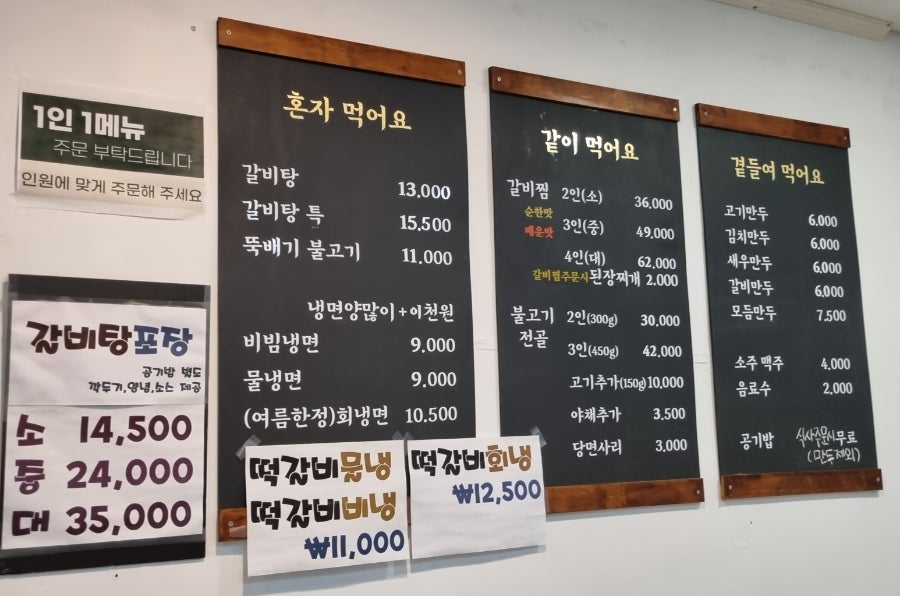 1인 1메뉴
주문 부탁드립니다
인원에 맞게 주문해 주세요
갈비탕포장
공기밥 별도
깍두기,양념,소스 제공
소 14,500
중 24,000
대 35,000
혼자 먹어요
갈비탕 13.000
갈비탕 특 15.500
뚝배기 불고기 11.000
냉면양많이+이천원
비빔냉면 9.000
물냉면 9.000
(여름한정)회냉면 10.500
떡갈비물냉
떡갈비비냉
₩11,000
떡갈비회냉
₩12,500
같이 먹어요
갈비찜 2인(소) 36,000
순한맛
매운맛 3인(중) 49,000
4인(대) 62,000
갈비찜주문시 된장찌개 2.000
불고기 2인(300g) 30,000
전골
3인(450g) 42,000
고기추가(150g) 10,000
야채추가 3,500
당면사리 3,000
곁들여 먹어요
고기만두 6.000
김치만두 6,000
새우만두 6.000
갈비만두 6.000
모듬만두 7,500
소주 맥주 4,000
음료수 2,000
공기밥 식사주문시무료
(만두제외)